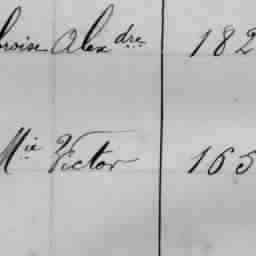 broise Alexdre 182
Mie Victor 165